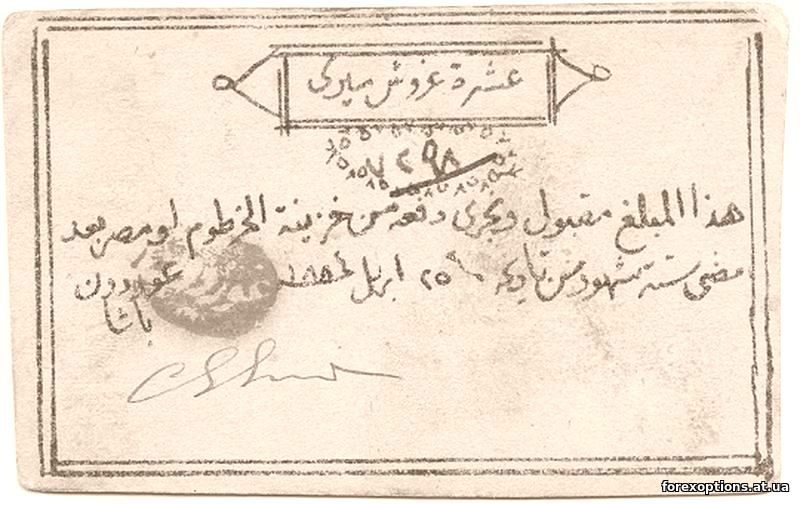 عشرة غروش ميري
٧٢٩٨
هذا المبلغ مقبول ويجرى دفعه من خزينة الخرطوم او مصر بعد
مضى ستة شهور من تاريخه ٢٥ ابريل ١٨٨٤ غوردون
باشا
forexoptions.at.ua